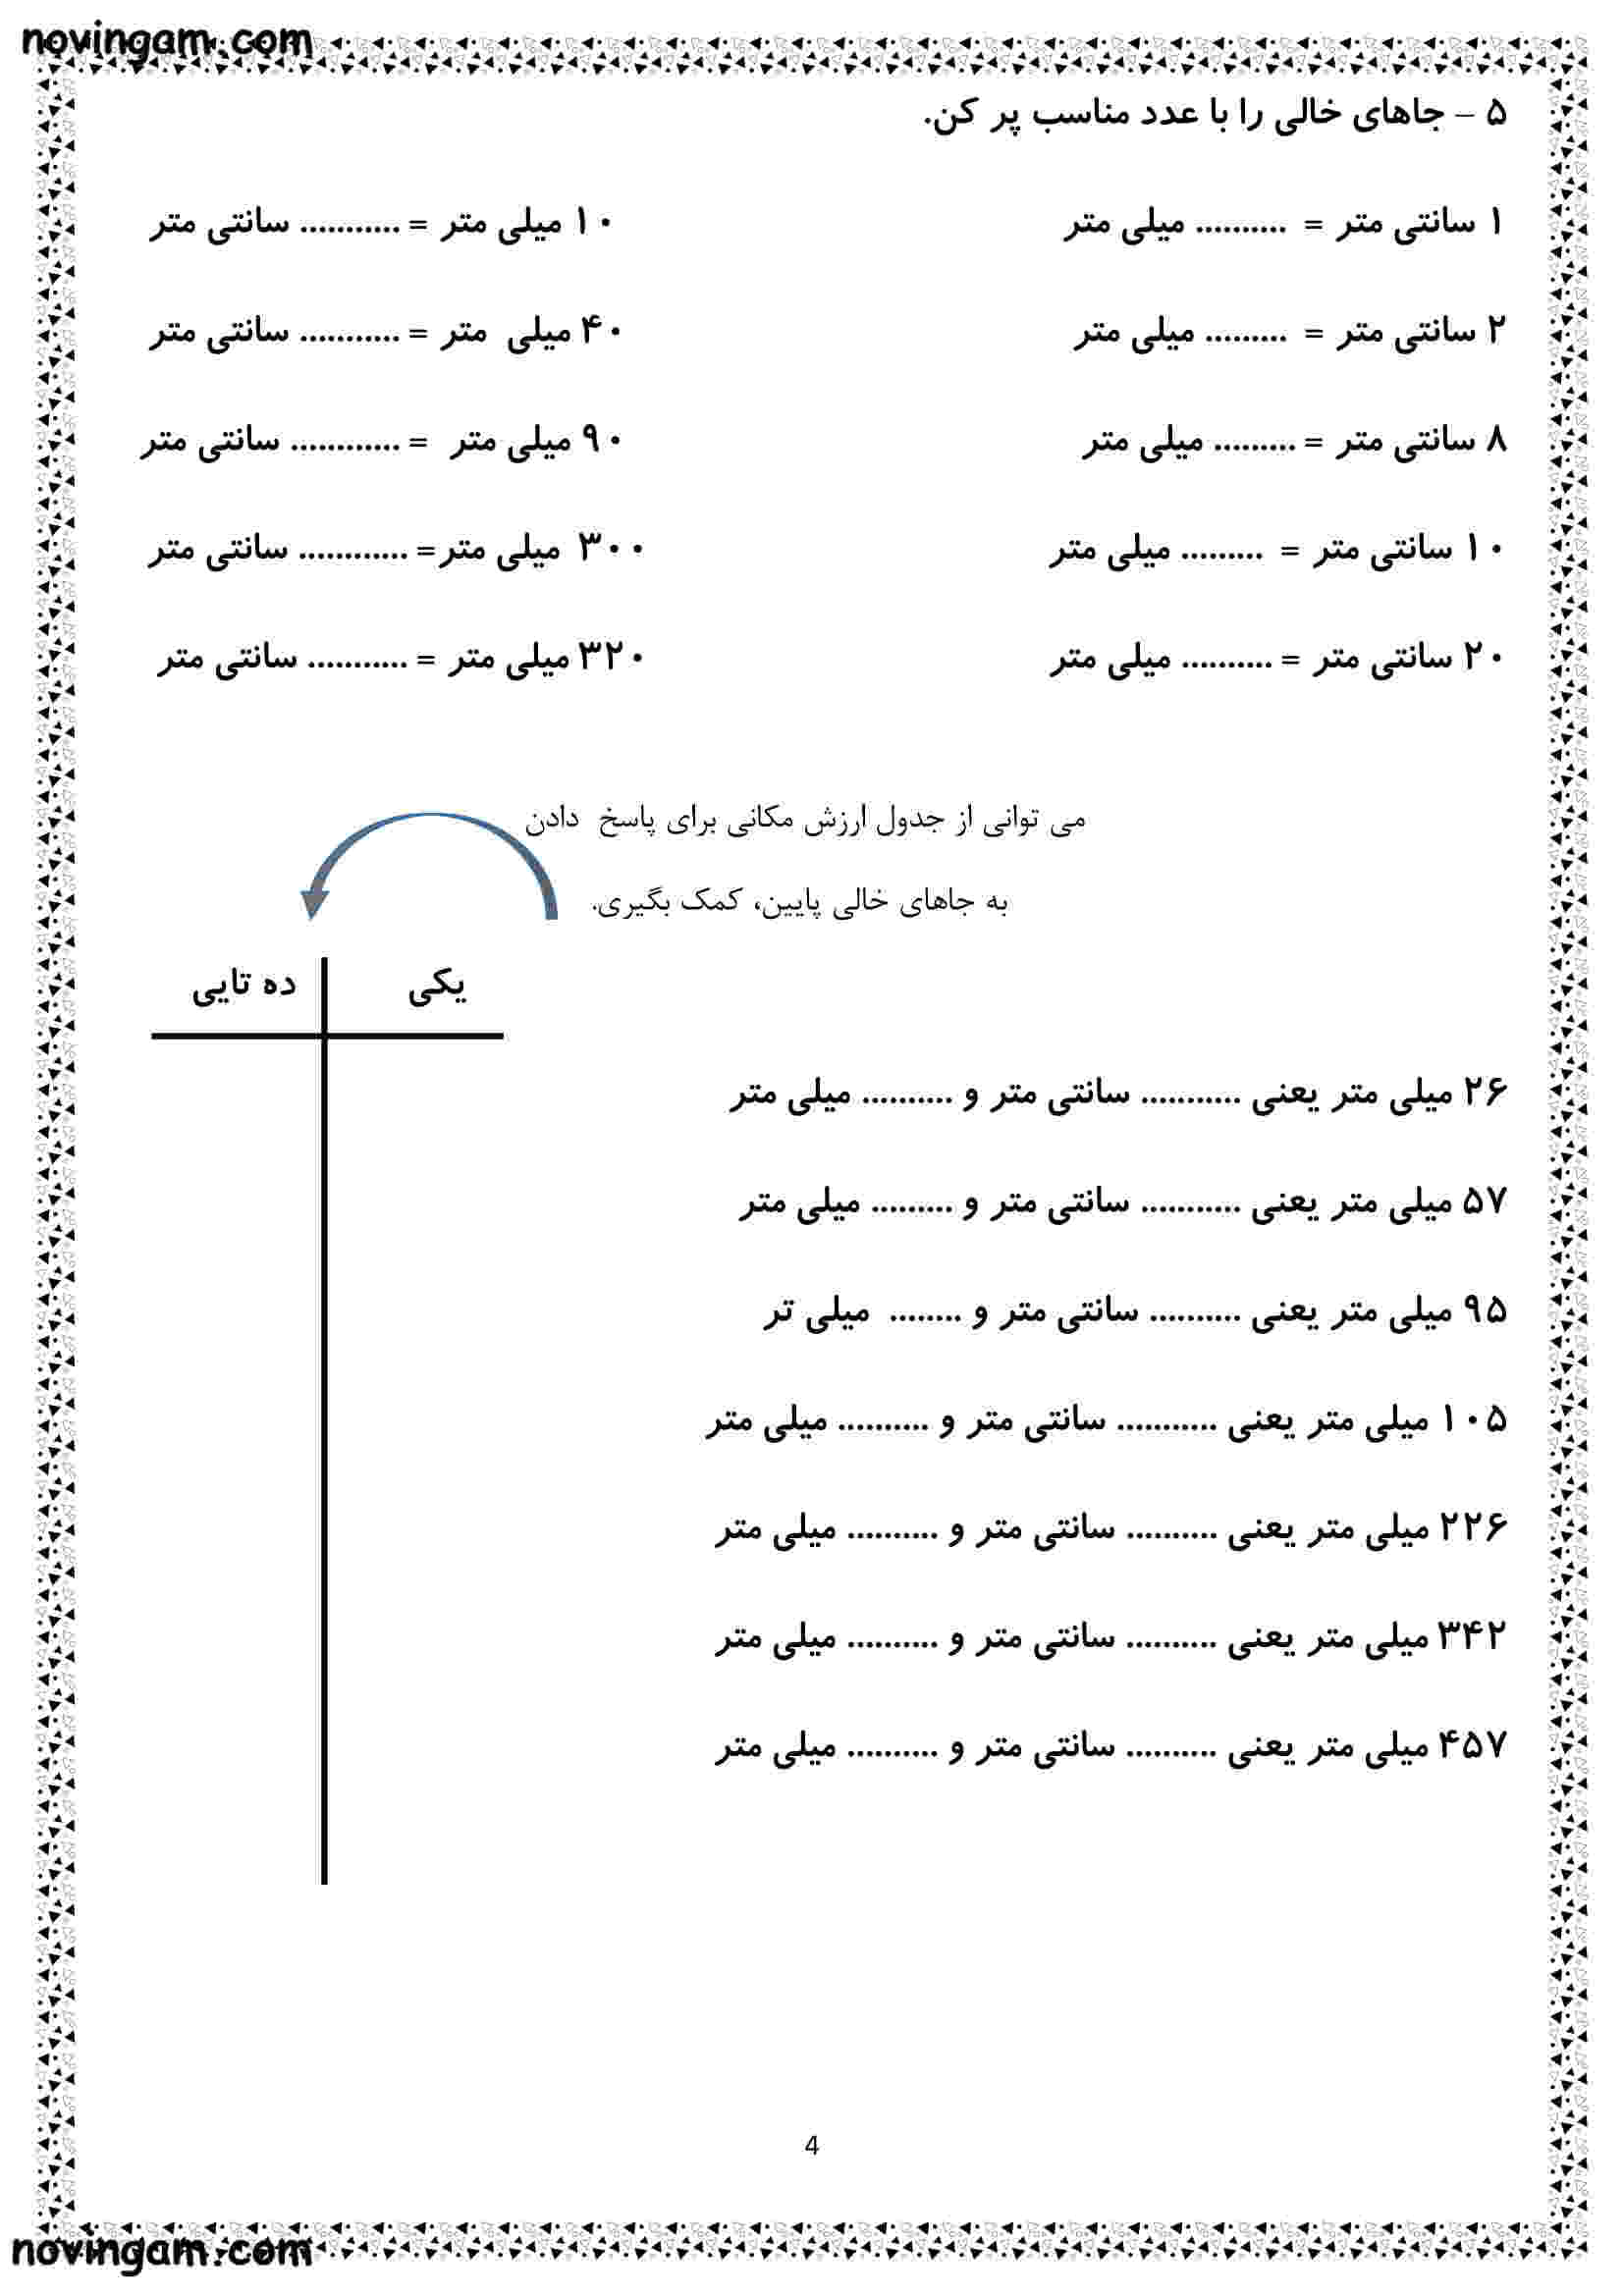 novingam.com
۵ – جاهای خالی را با عدد مناسب پر کن.
۱ سانتی متر = .......... میلی متر ۱۰ میلی متر = ........... سانتی متر
۲ سانتی متر = ......... میلی متر ۴۰ میلی متر = ........... سانتی متر
۸ سانتی متر = ......... میلی متر ۹۰ میلی متر = ............ سانتی متر
۱۰ سانتی متر = ......... میلی متر ۳۰۰ میلی متر = ............ سانتی متر
۲۰ سانتی متر = .......... میلی متر ۳۲۰ میلی متر = ........... سانتی متر
می توانی از جدول ارزش مکانی برای پاسخ دادن
به جاهای خالی پایین، کمک بگیری.
یکی ده تایی
۲۶ میلی متر یعنی ........... سانتی متر و .......... میلی متر
۵۷ میلی متر یعنی ........... سانتی متر و ......... میلی متر
۹۵ میلی متر یعنی .......... سانتی متر و ........ میلی تر
۱۰۵ میلی متر یعنی ........... سانتی متر و .......... میلی متر
۲۲۶ میلی متر یعنی .......... سانتی متر و .......... میلی متر
۳۴۲ میلی متر یعنی .......... سانتی متر و .......... میلی متر
۴۵۷ میلی متر یعنی .......... سانتی متر و .......... میلی متر
4
novingam.com